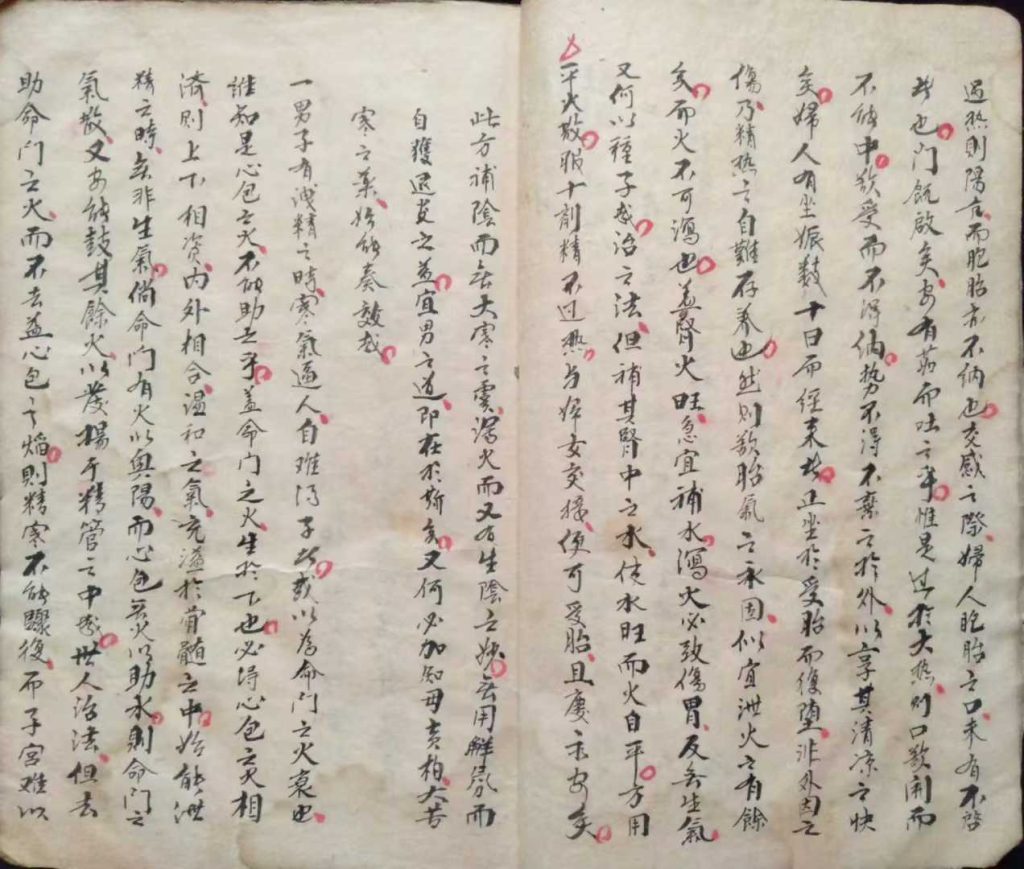 過熱則陽亢而胞胎亦不納也交感之際婦人胞胎之口未有不啓
者也門既啟矣安有茹而吐之乎惟是過於大熱則口欲開而
不能中欲受而不得倘势不得不棄之於外以享其清凉之快
矣婦人有坐娠数十日而經来者正坐於受胎而復堕非外因之
傷乃精热之自難存养也然则欲胎氣之永固似宜泄火之有餘
矣而火不可瀉也蓋腎火旺急宜補水瀉火必致傷胃反无生氣
又何以種子哉治之法但補其腎中之水使水旺而火自平方用
平火散服十劑精不过热与婦女交接便可受胎且慶永安矣
此方補陰而无大寒之虞瀉火而又有生陰之妙无用解氛而
自獲退炎之益宜男之道即在於斯矣又何必加知母黄柏大苦
寒之藥始能奏效哉
一男子有洩精之時寒氣逼人自难得子者或以為命門之火衰也
誰知是心包之火不能助之乎蓋命門之火生於下也必得心包之火相
濟則上下相资內外相合温和之氣充溢於骨髓之中始能泄
精之時矣非生氣倘命門有火以興陽而心包无火以助水則命門之
氣散又安能鼓其餘火以發揚于精管之中哉世人治法但去
助命門之火而不去益心包之焰則精寒不能驟復而子宮难以